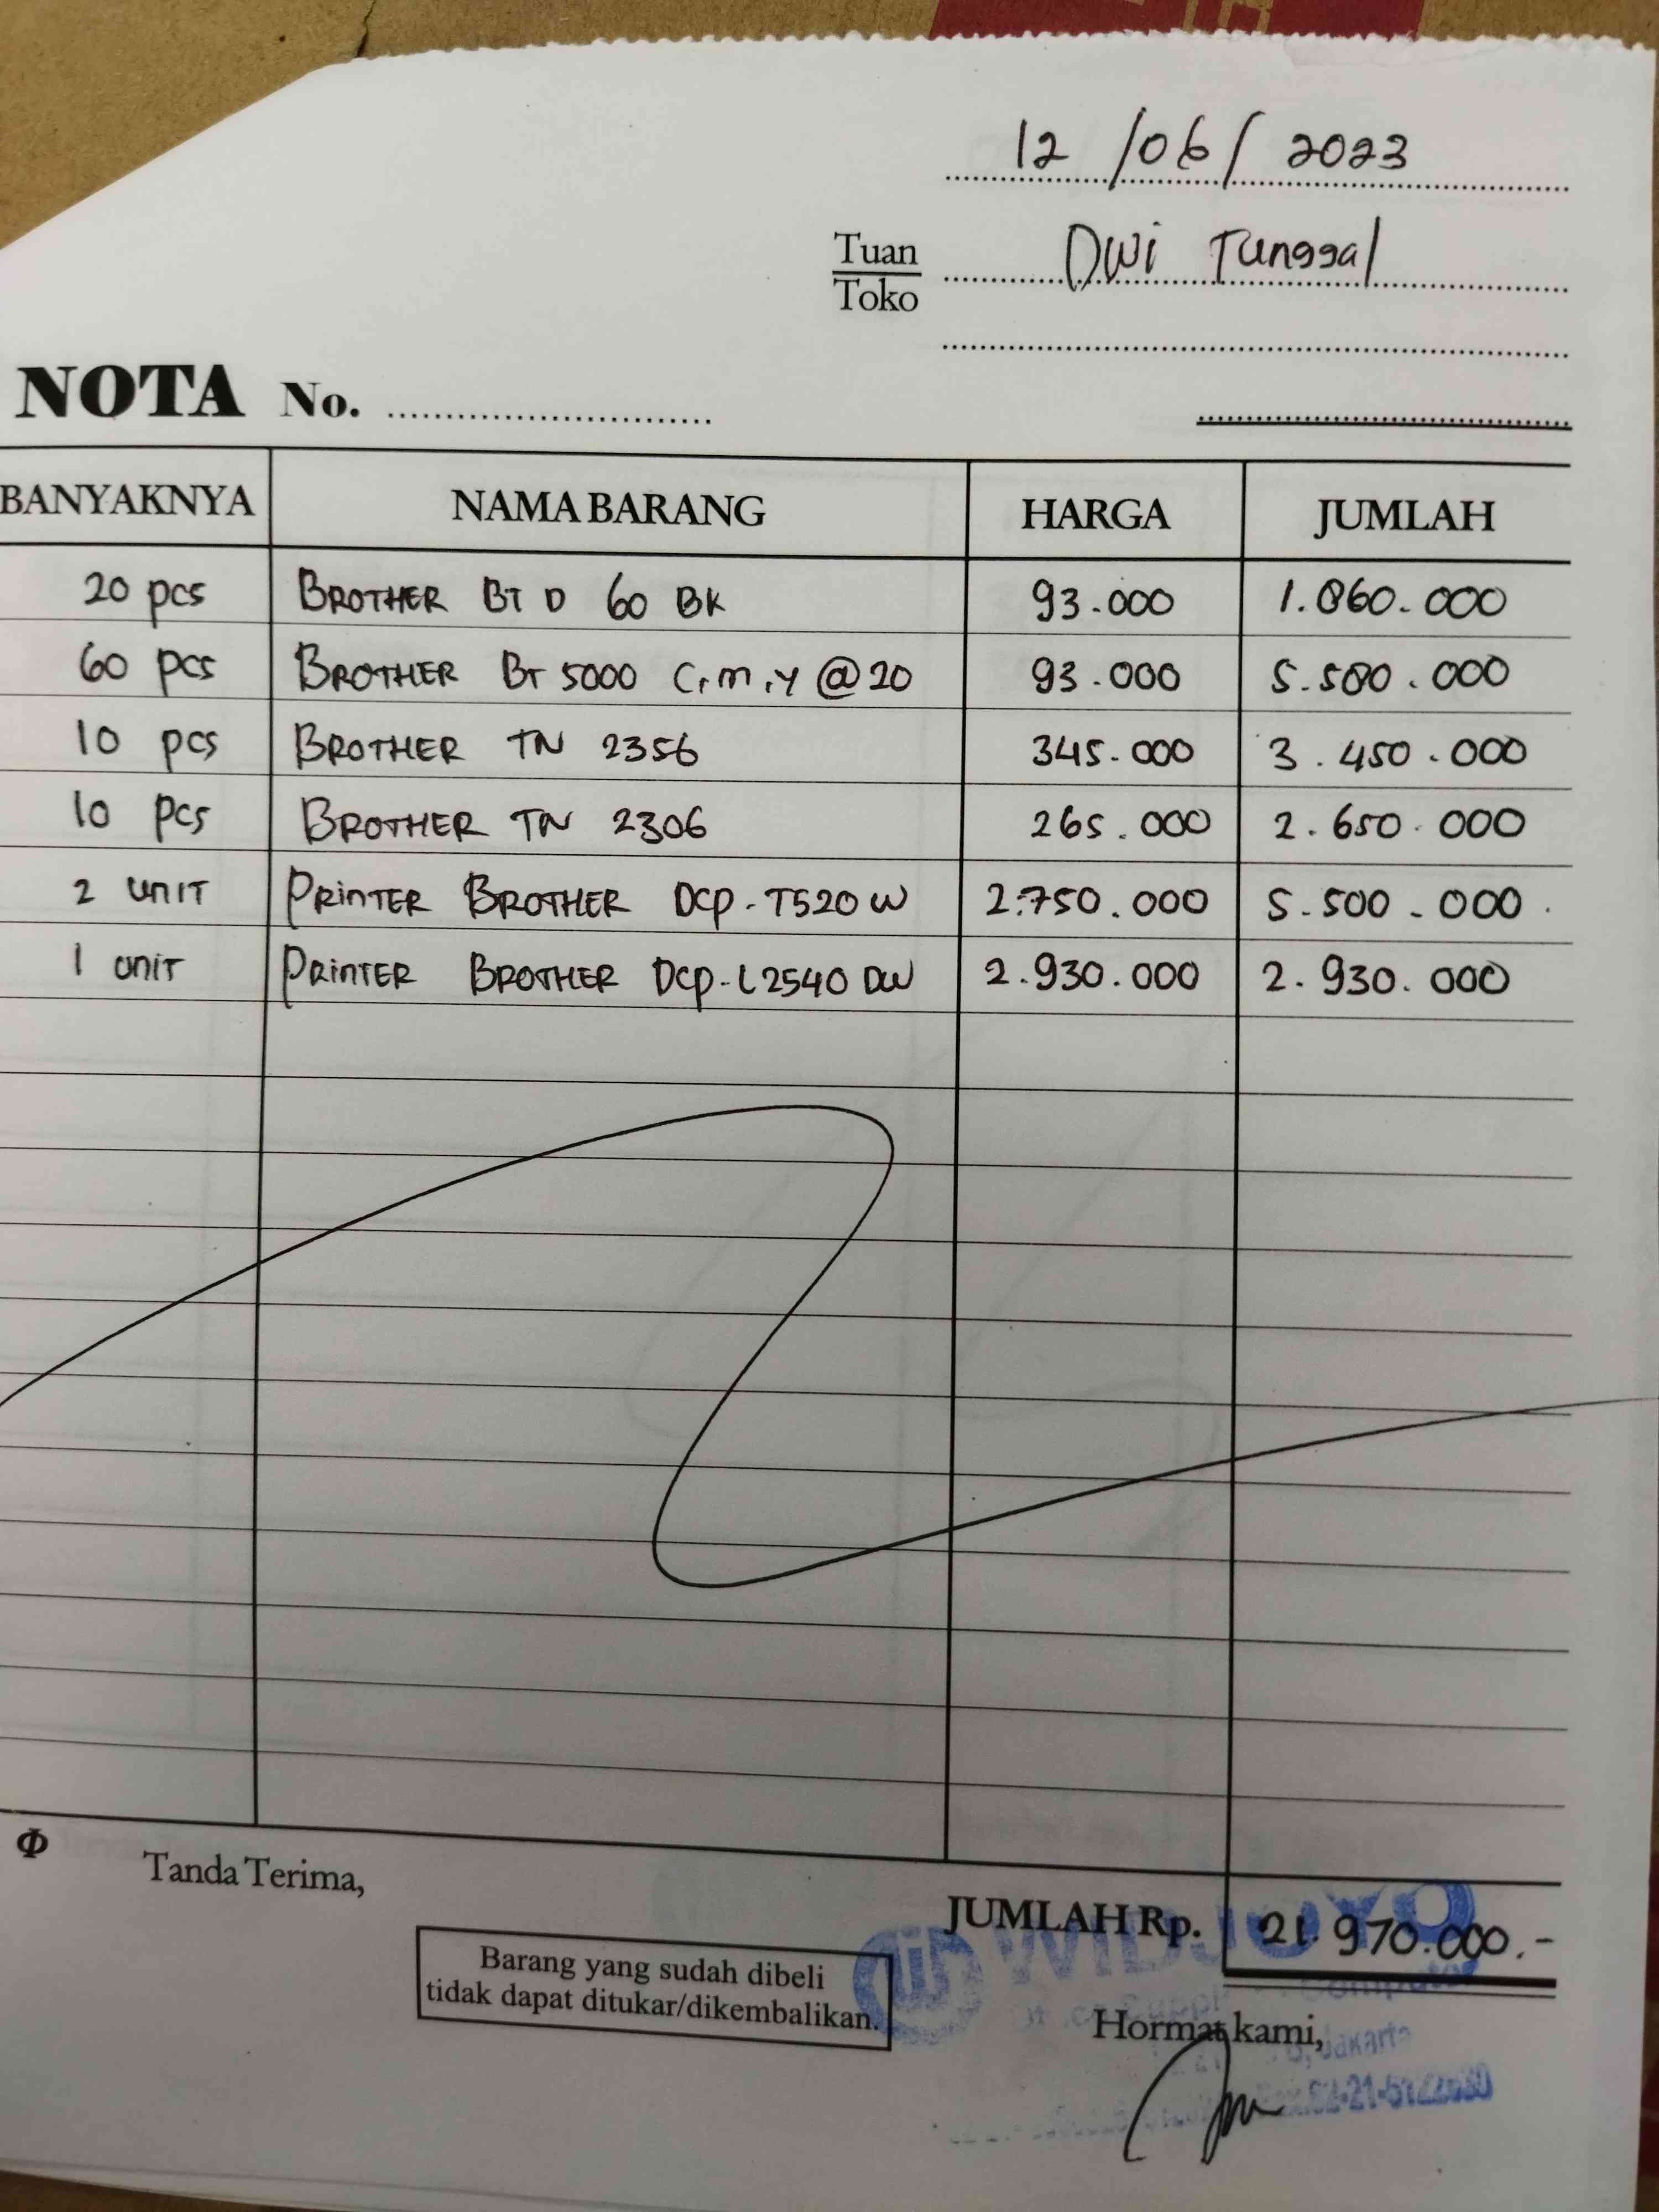 12 /06/ 2023
Tuan
Toko
Dwi Tunggal
NOTA No.
BANYAKNYA NAMA BARANG HARGA JUMLAH
20 pcs BROTHER BT D 60 BK 93.000 1.860.000
60 pcs BROTHER BT 5000 C,m,Y @20 93.000 5.580.000
10 pcs BROTHER TN 2356 345.000 3.450.000
10 pcs BROTHER TN 2306 265.000 2.650.000
2 UNIT PRINTER BROTHER DCP-T520W 2.750.000 5.500.000
1 UNIT PRINTER BROTHER DCP-L2540 DW 2.930.000 2.930.000
Φ Tanda Terima,
JUMLAH Rp. 21.970.000.-
Barang yang sudah dibeli
tidak dapat ditukar/dikembalikan.
WIDJOYO
Hormat kami,
Jakarta